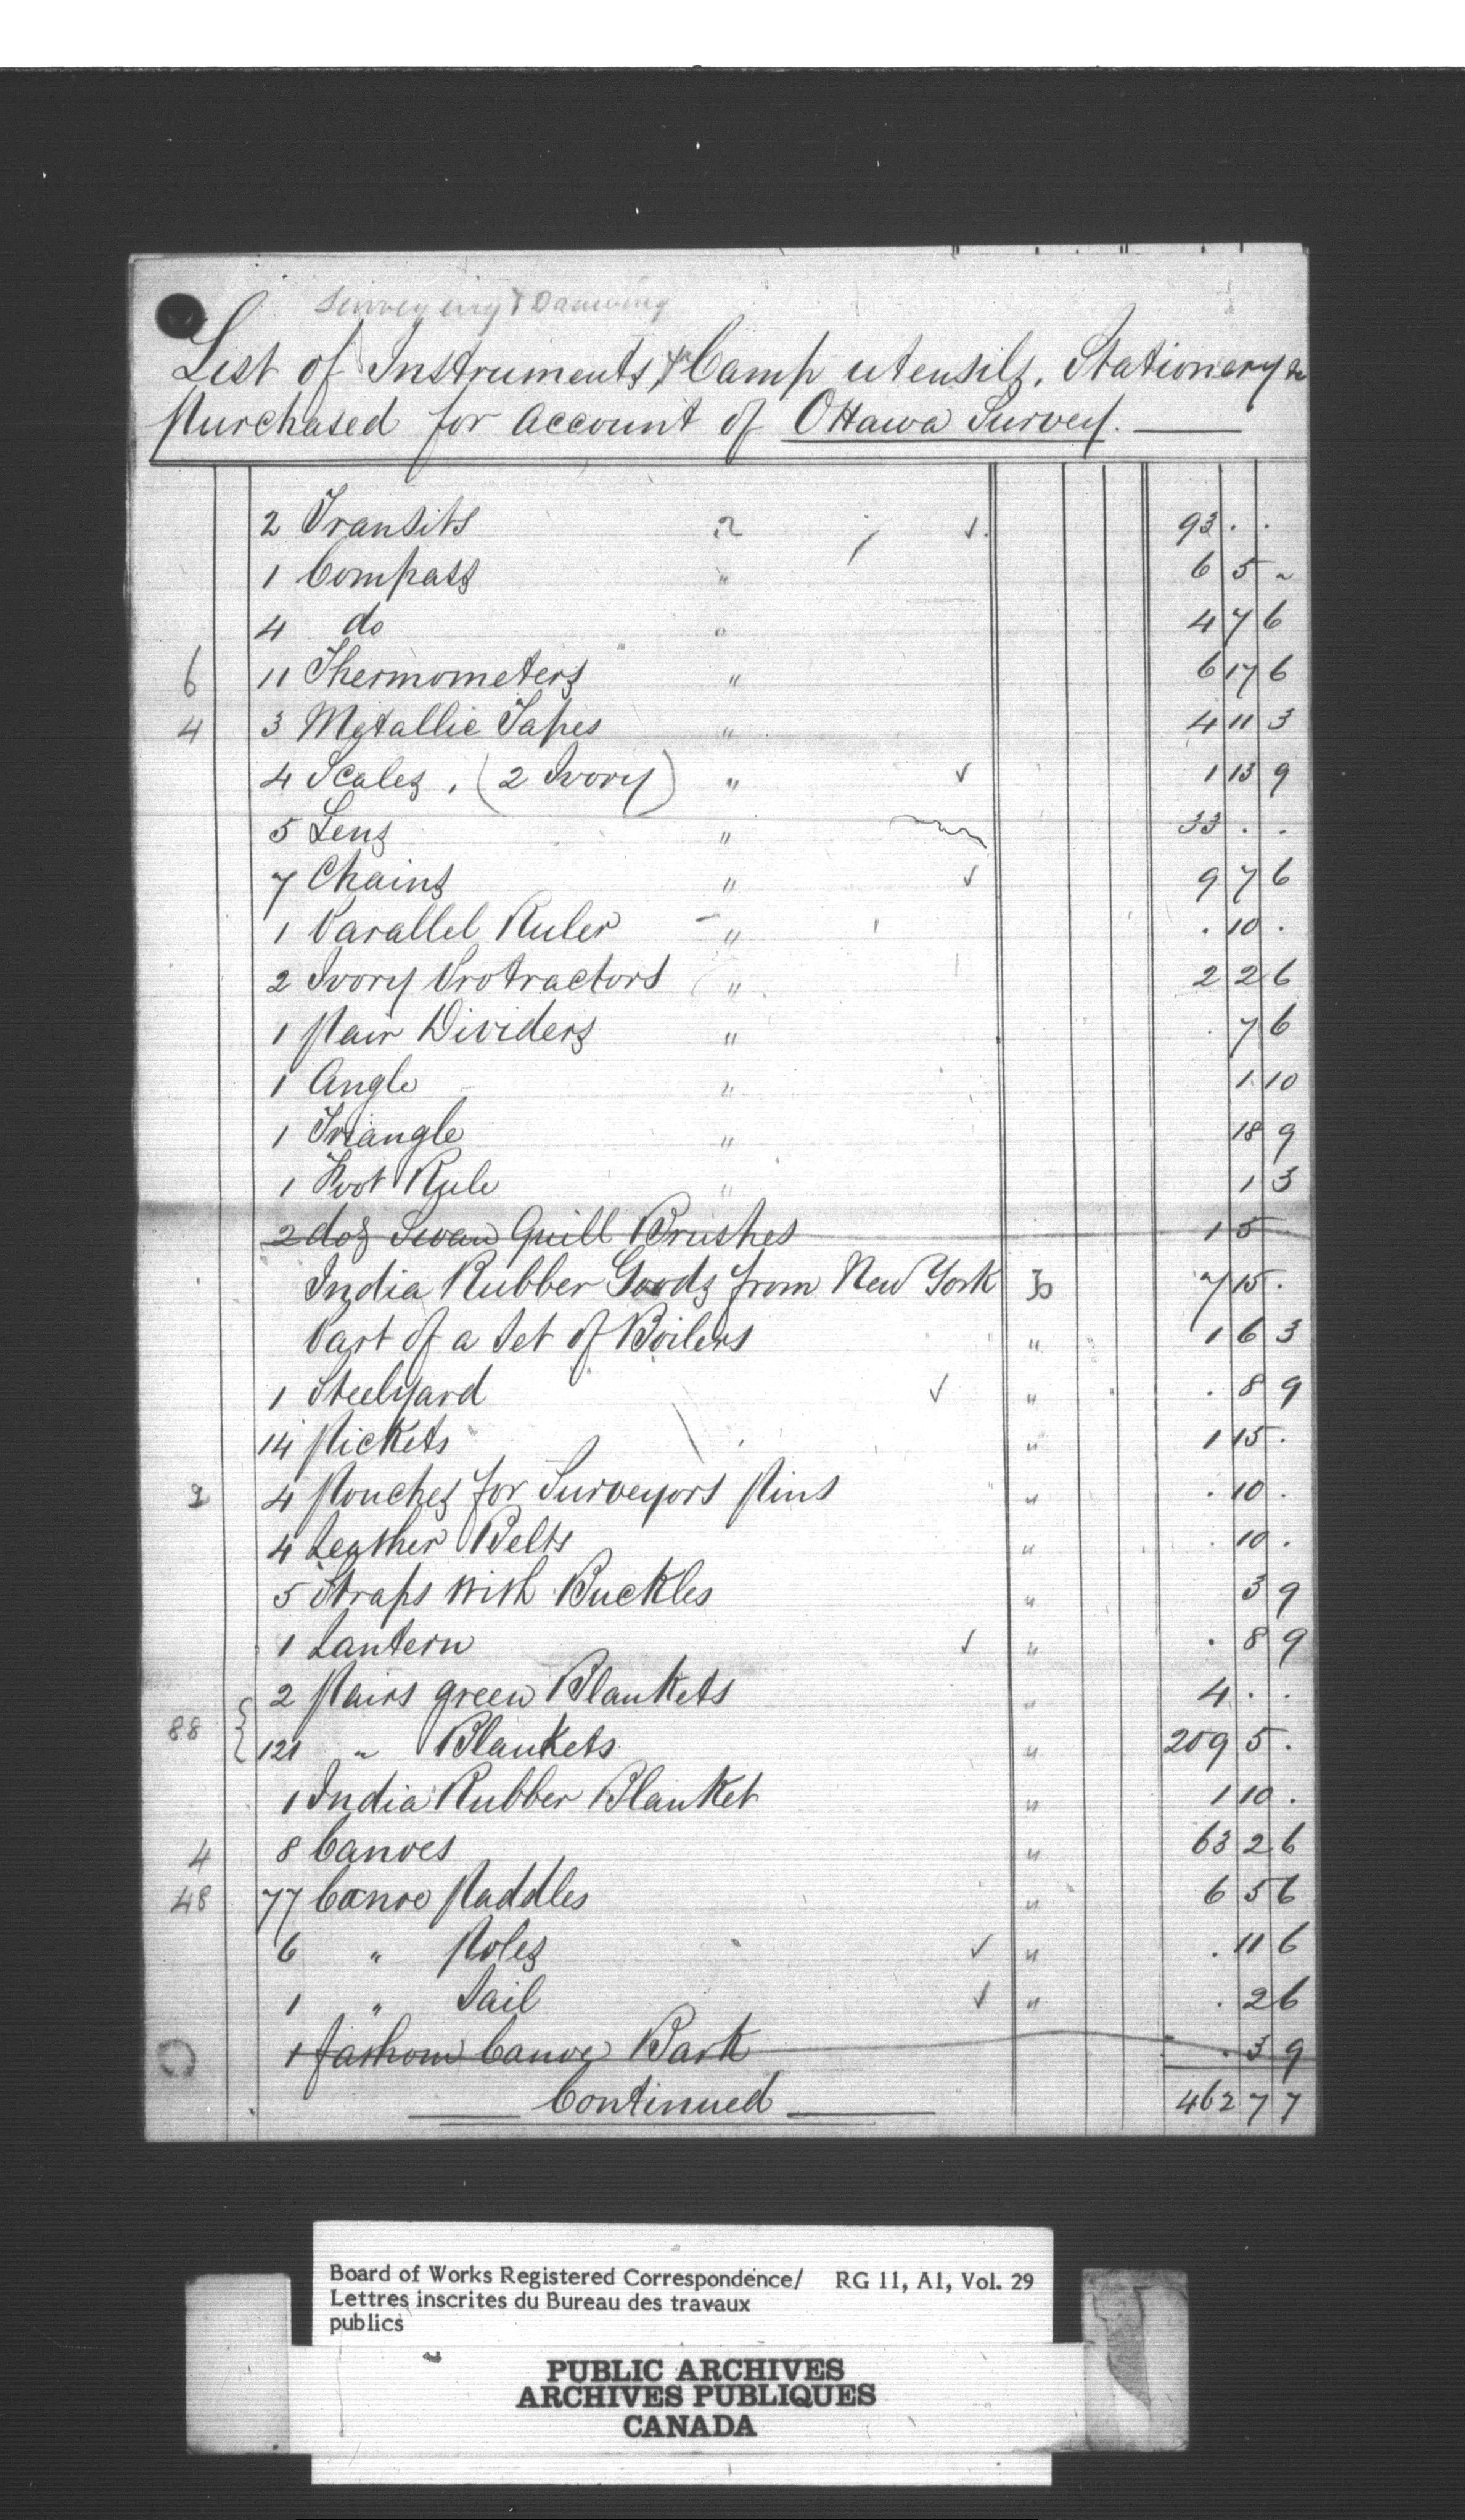 Surveying & Drawing
List of Instruments, Camp utensils, Stationery &c
Purchased for account of Ottawa Survey.
2 Transits 93 . .
1 Compass " 6 5 ~
4 do " 4 7 6
6 11 Thermometers " 6 17 6
4 3 Metallic Tapes " 4 11 3
4 Scales, (2 Ivory) " ✓ 1 13 9
5 Lens " 33 . .
7 Chains " ✓ 9 7 6
1 Parallel Ruler " . 10 .
2 Ivory Protractors " 2 2 6
1 Pair Dividers " . 7 6
1 Angle " 1 10
1 Triangle " 18 9
1 Foot Rule " 1 3
2 doz Swan Quill Brushes 1 5
India Rubber Goods from New York 7 15 .
Part of a Set of Boilers " 1 6 3
1 Steelyard ✓ " . 8 9
14 Pickets " 1 15 .
2 4 Pouches for Surveyors Pins " . 10 .
4 Leather Belts " . 10 .
5 Straps with Buckles " 3 9
1 Lantern ✓ " . 8 9
2 Pairs green Blankets " 4 . .
88 121 " Blankets " 209 5 .
1 India Rubber Blanket " 1 10 .
4 8 Canoes " 63 2 6
48 77 Canoe Paddles " 6 5 6
6 " Poles ✓ " . 11 6
1 " Sail ✓ " . 2 6
1 fathom Canoe Bark . 3 9
Continued 462 7 7
Board of Works Registered Correspondence/ RG 11, A1, Vol. 29
Lettres inscrites du Bureau des travaux
publics
PUBLIC ARCHIVES
ARCHIVES PUBLIQUES
CANADA